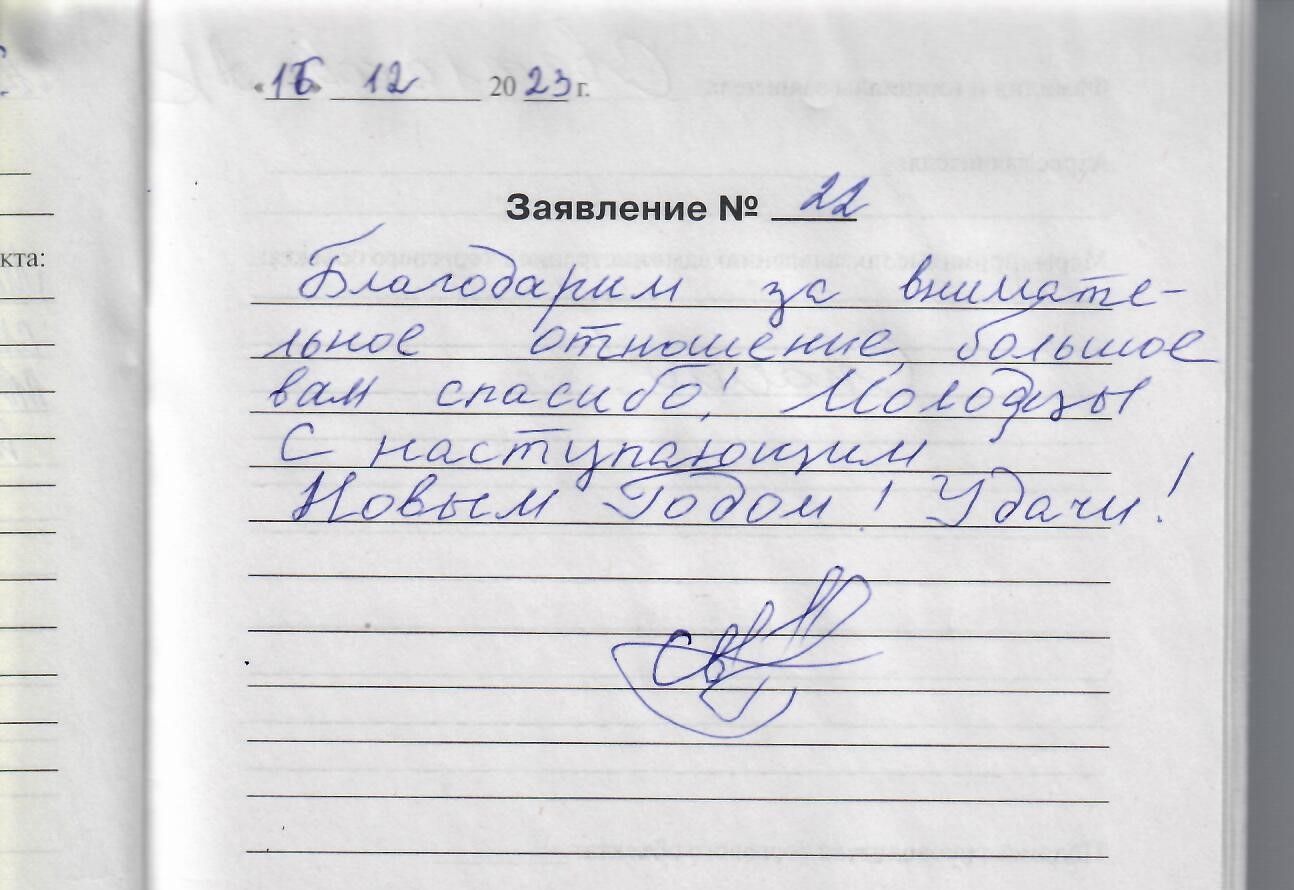 «16» 12 2023 г.
Заявление № 22
кта:
Благодарим за внимате-
льное отношение, большое
вам спасибо! Молодцы
С наступающим
Новым Годом! Удачи!